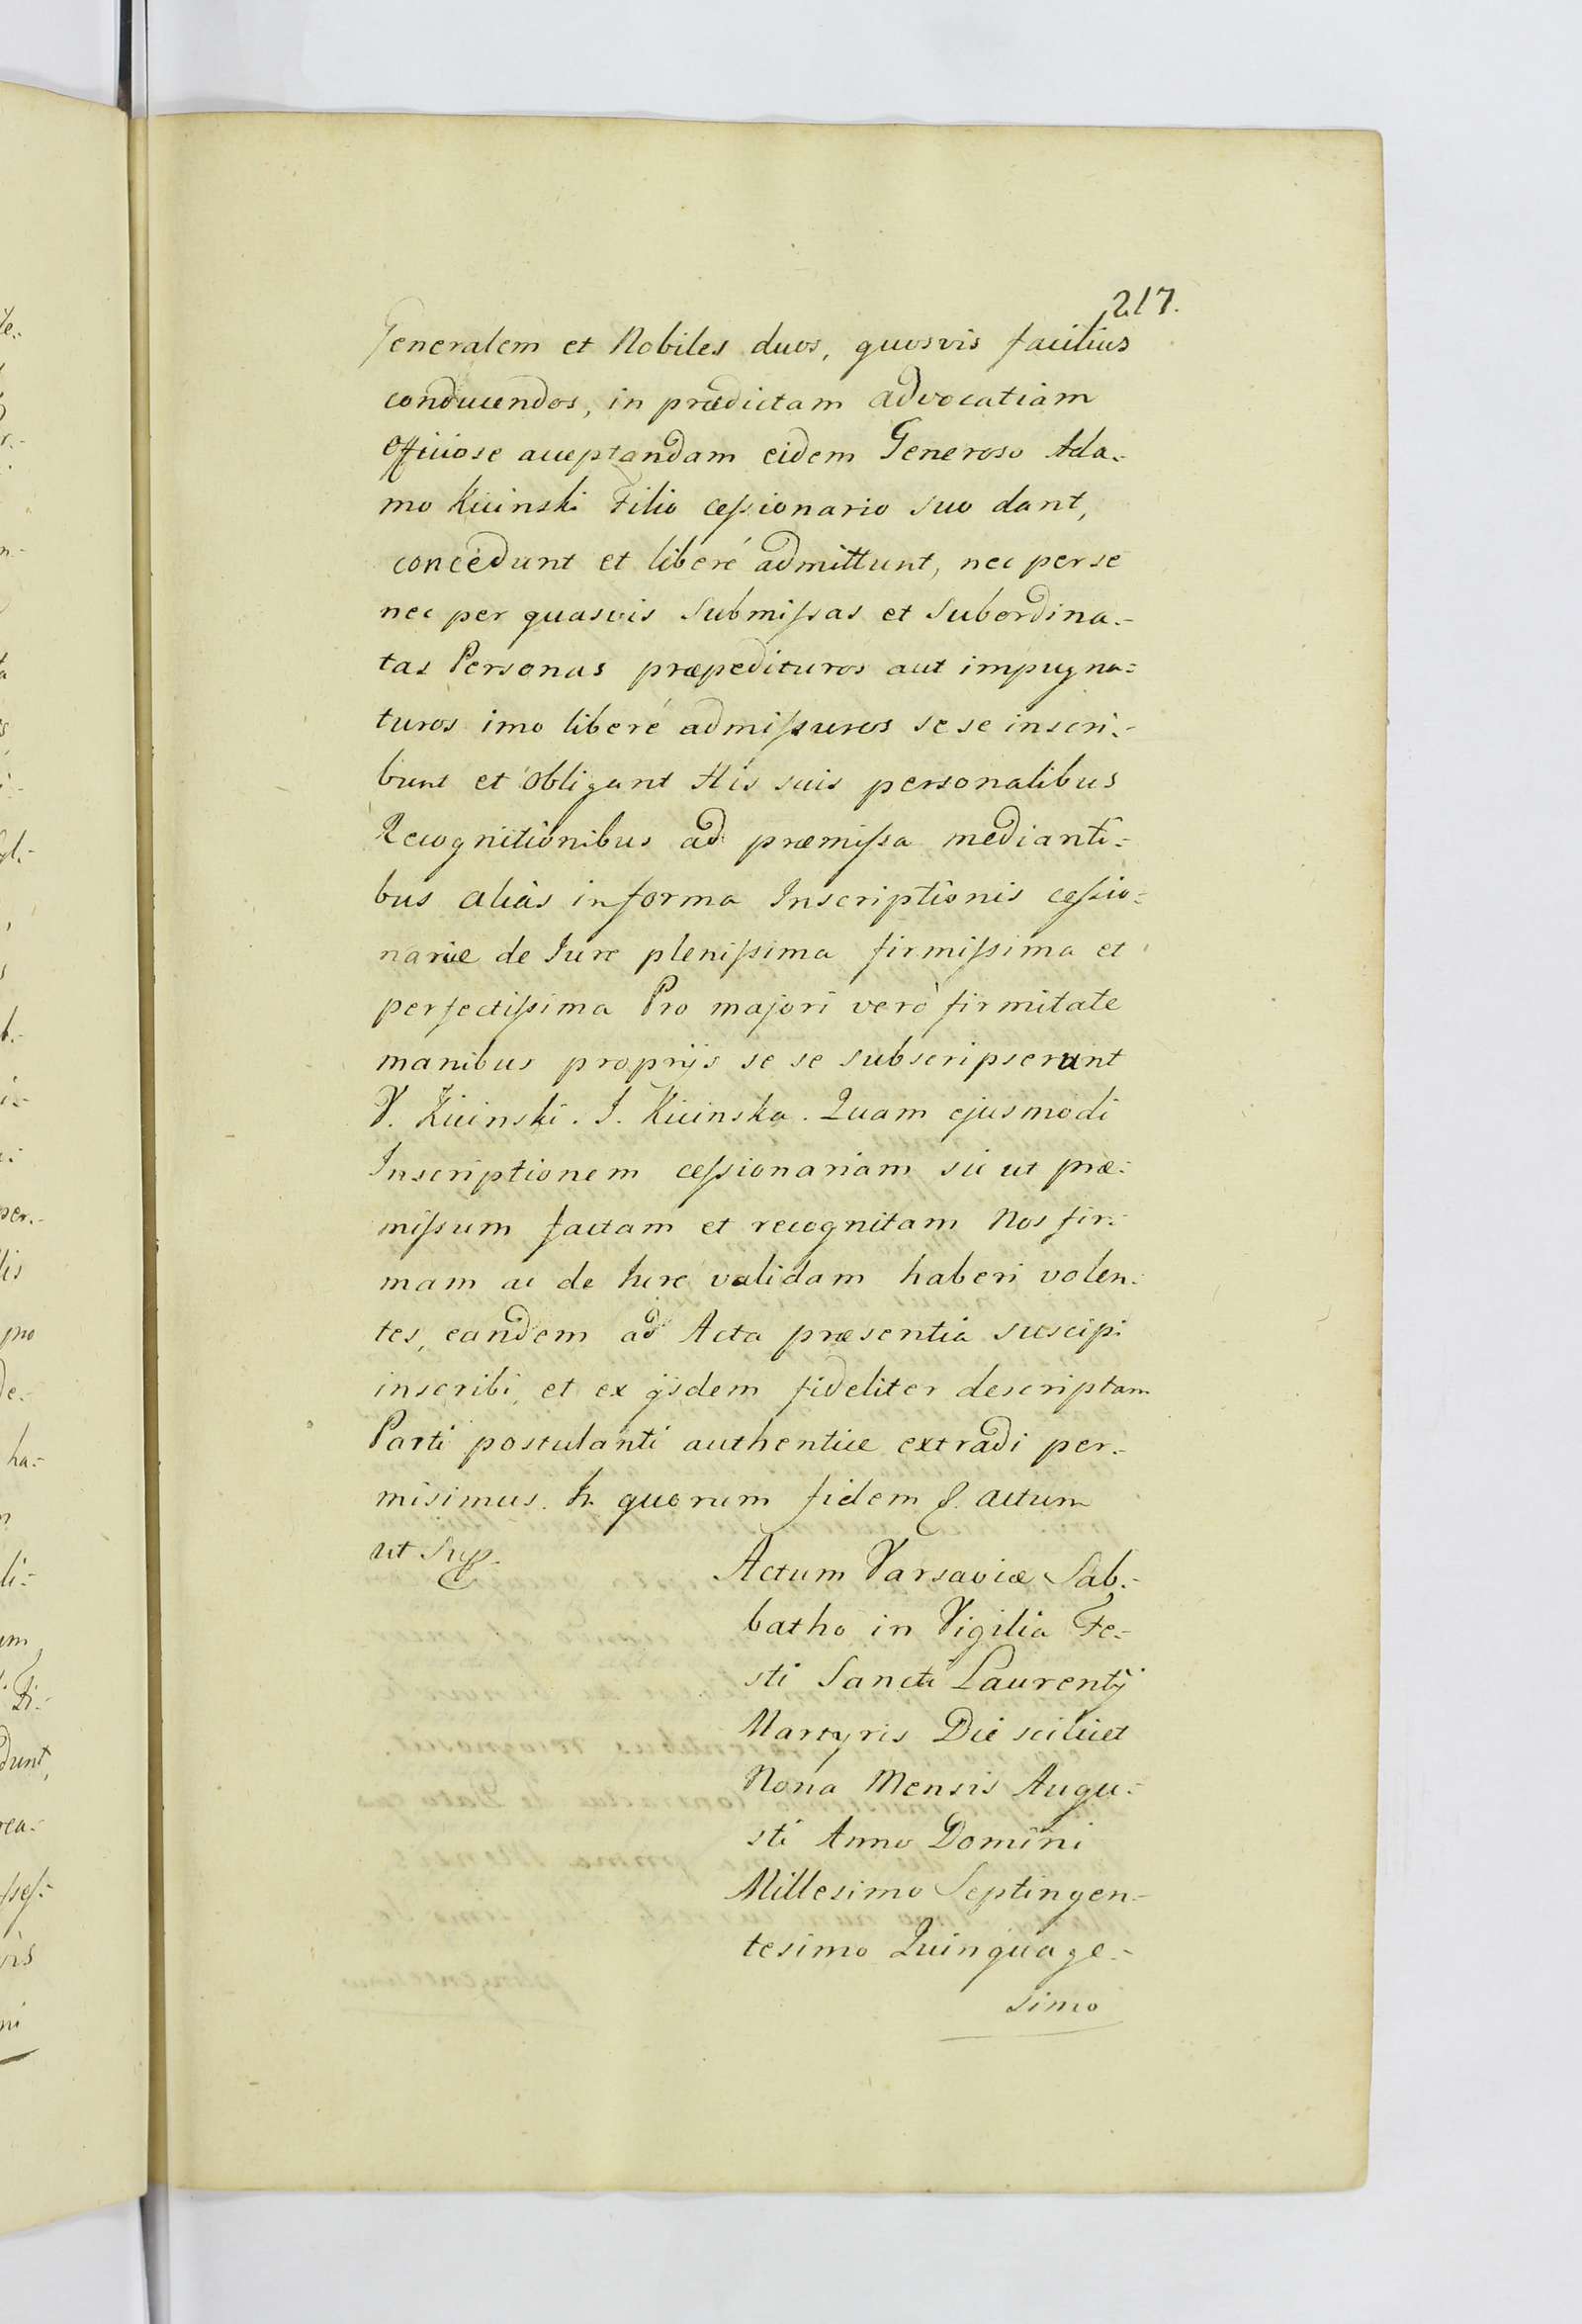 217.
Generalem et Nobiles duos, quosvis facilius
conducendos, in prædictam advocatiam
officiose acceptandam eidem Generoso Ada=
mo Kicinski Filio cessionario suo dant,
concedunt et liberé admittunt, nec per se
nec per quasvis submissas et subordina=
tas Personas præpedituros aut impugna=
turos imo liberé admissuros se se inscri=
bunt et obligant His suis personalibus
Recognitionibus ad præmissa medianti=
bus aliàs in forma Inscriptionis cessio=
nariæ de Jure plenissima firmissima et
perfectissima Pro majori verò firmitate
manibus proprijs se se subscripserunt
V. Kicinski. J. Kicinska. Quam ejusmodi
Inscriptionem cessionariam sic ut præ=
missum factam et recognitam Nos fir=
mam ac de Jure validam haberi volen=
tes, eandem ad Acta præsentia suscipi
inscribi, et ex ijsdem fideliter descriptam
Parti postulanti authentice extradi per=
misimus. In quorum fidem &. actum
ut Sup.
Actum Varsaviæ Sab=
batho in Vigilia Fe=
sti Sancti Laurentij
Martyris Die scilicet
Nona Mensis Augu=
sti Anno Domini
Millesimo Septingen=
tesimo Quinquage=
simo